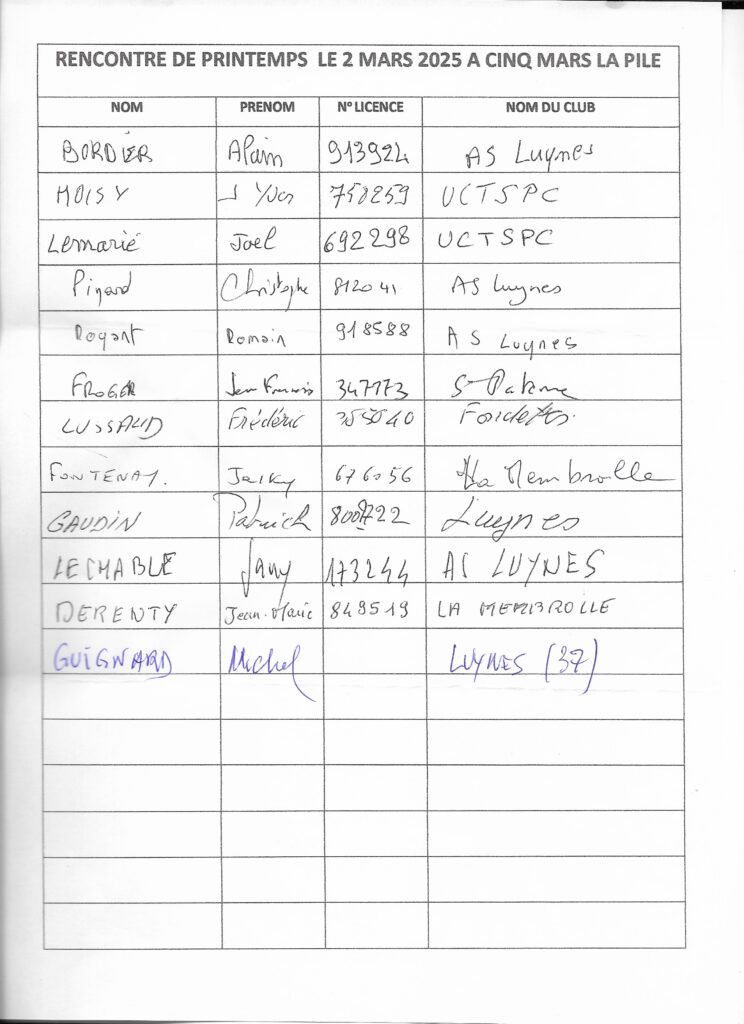 RENCONTRE DE PRINTEMPS LE 2 MARS 2025 A CINQ MARS LA PILE
NOM PRENOM N° LICENCE NOM DU CLUB
BORDIER Alain 913924 AS Luynes
MOISY J Yves 758259 UCTSPC
Lemarié Joel 692298 UCTSPC
Pinard Christophe 812041 AS Luynes
Romain 918588 AS Luynes
FROGER Jean Francois 347173 St Paterne
LUSSAUD Frédéric 355040 Fondettes.
FONTENAY. Jacky 676056 La Membrolle
GAUDIN Patrick 800722 Luynes
LECHABLE Jany 173244 AS LUYNES
DERENTY Jean-Marie 849519 LA MEMBROLLE
GUIGNARD Michel LUYNES (37)